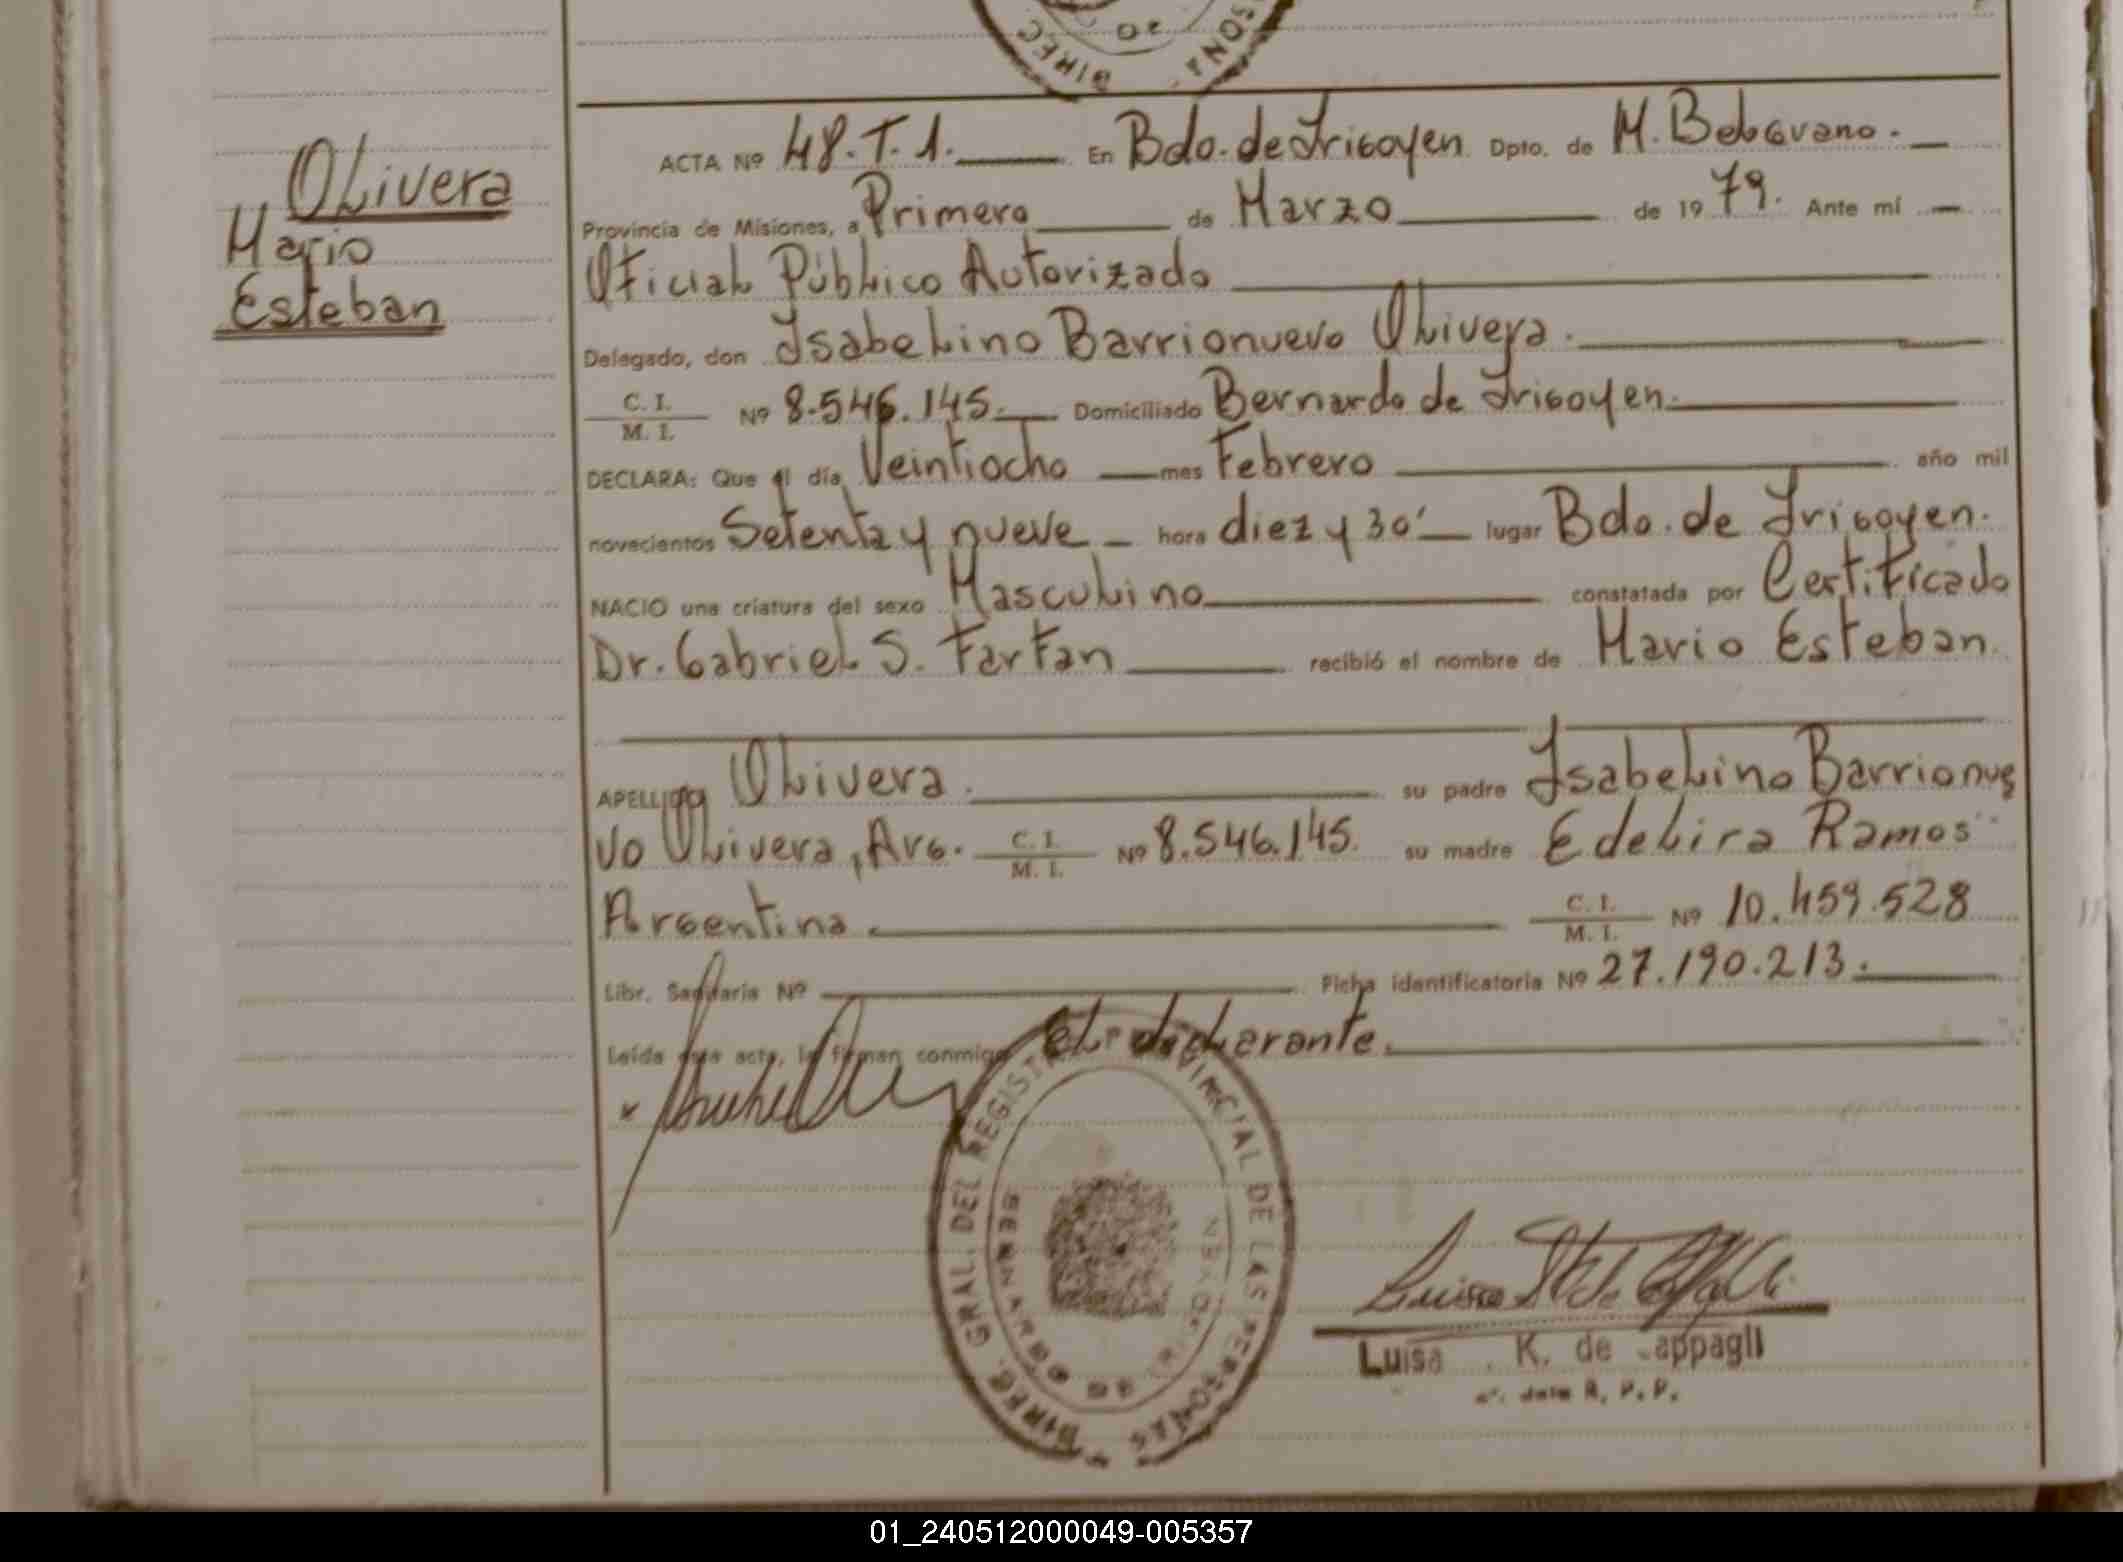 OLivera
Mario
Esteban
DIREC SONA
ACTA Nº 48.T.1. En Bdo. de Irigoyen Dpto. de M. Belgrano.
Provincia de Misiones, a Primero de Marzo de 1979. Ante mí
Oficial Público Autorizado
Delegado, don Isabelino Barrionuevo Olivera.
C. I.
M. I. Nº 8.546.145. Domiciliado Bernardo de Irigoyen.
DECLARA: Que el día Veintiocho mes Febrero año mil
novecientos Setenta y nueve hora diez y 30' lugar Bdo. de Irigoyen.
NACIO una criatura del sexo Masculino constatada por Certificado
Dr. Gabriel S. Farfan recibió el nombre de Mario Esteban.
APELLIDO Olivera. su padre Isabelino Barrionue
vo Olivera, Arg. C. I. M. I. Nº 8.546.145. su madre Edelira Ramos
Argentina. C. I. M. I. Nº 10.459.528
Libr. Sanitaria Nº Ficha identificatoria Nº 27.190.213.
Leída esta acta, la firman conmigo el declarante.
DIREC. GRAL. DEL REGISTRO PROVINCIAL DE LAS PERSONAS
BERNARDO DE IRIGOYEN
Luisa K. de appagli
R. P. P.
01_240512000049-005357